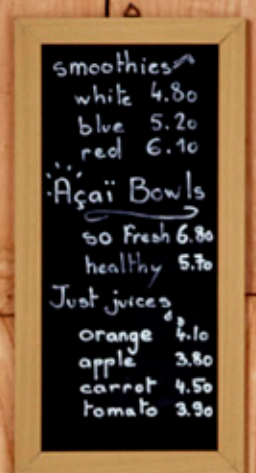 smoothies
white 4.80
blue 5.20
red 6.10
Açaï Bowls
so Fresh 6.80
healthy 5.70
Just juices
orange 4.10
apple 3.80
carrot 4.50
tomato 3.90